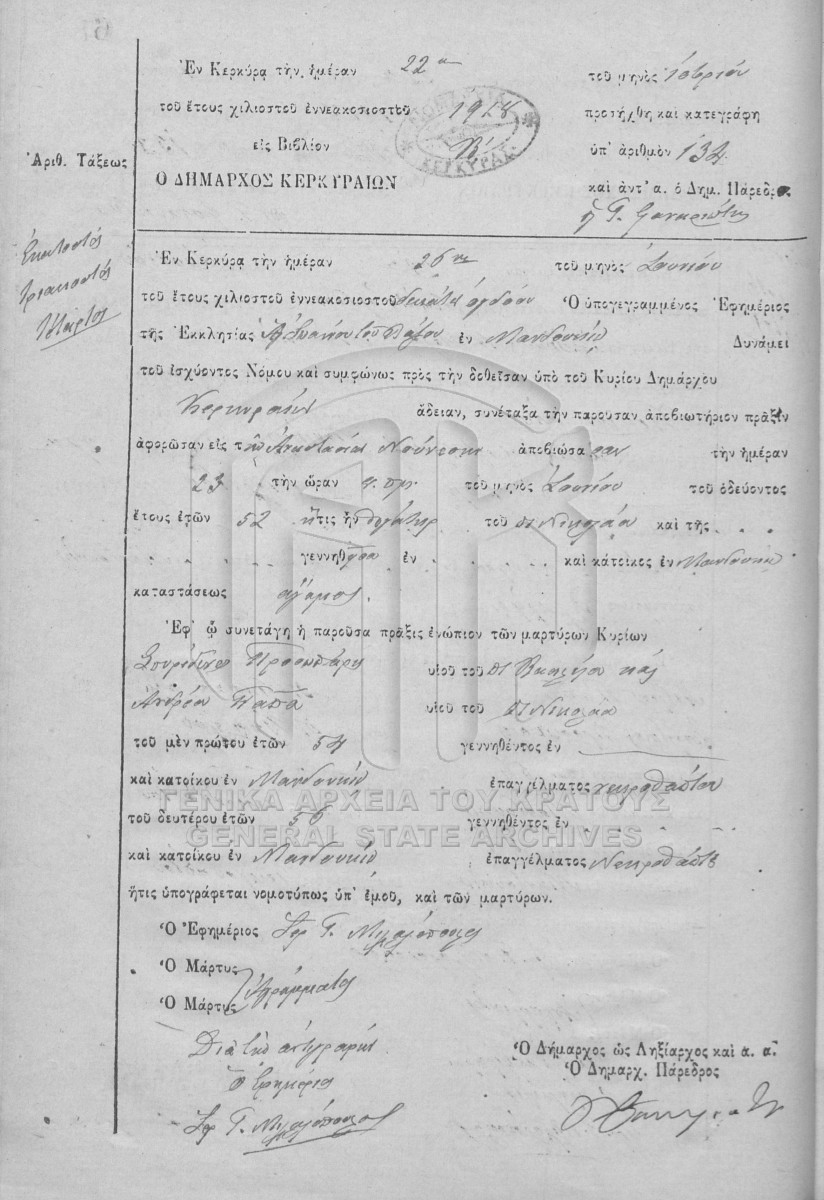 Ἐν Κερκύρᾳ τὴν ἡμέραν 22α τοῦ μηνὸς
τοῦ ἔτους χιλιοστοῦ ἐννεακοσιοστοῦ 1918 προσήχθη καὶ κατεγράφη
εἰς Βιβλίον Β' ὑπ' ἀριθμὸν 134
Ἀριθ. Τάξεως
Ὁ ΔΗΜΑΡΧΟΣ ΚΕΡΚΥΡΑΙΩΝ καὶ ἀντ' α. ὁ Δημ. Πάρεδρος
ΚΕΡΚΥΡΑΣ
Ἑκατοστὸς
τριακοστὸς
τέταρτος
Ἐν Κερκύρᾳ τὴν ἡμέραν 26ην τοῦ μηνὸς Ἰουνίου
τοῦ ἔτους χιλιοστοῦ ἐννεακοσιοστοῦ δεκάτου ὀγδόου Ὁ ὑπογεγραμμένος Ἐφημέριος
τῆς Ἐκκλησίας ἐν Μανδουκίῳ Δυνάμει
τοῦ ἰσχύοντος Νόμου καὶ συμφώνως πρὸς τὴν δοθεῖσαν ὑπὸ τοῦ Κυρίου Δημάρχου
Κερκυραίων ἄδειαν, συνέταξα τὴν παροῦσαν ἀποβιωτήριον πρᾶξιν
ἀφορῶσαν εἰς τὴν Ἀναστασίαν ἀποβιώσασαν τὴν ἡμέραν
23 τὴν ὥραν π.μ. τοῦ μηνὸς Ἰουνίου τοῦ ὁδεύοντος
ἔτους ἐτῶν 52 ἥτις ἦν θυγάτηρ τοῦ Νικολάα καὶ τῆς . .
. . . . . γεννηθεῖσα ἐν . . . . . καὶ κάτοικος ἐν Μανδουκίῳ
καταστάσεως ἄγαμος.
Ἐφ' ᾧ συνετάγη ἡ παροῦσα πρᾶξις ἐνώπιον τῶν μαρτύρων Κυρίων
Σπυρίδωνος υἱοῦ τοῦ καὶ
Ἀνδρέα Παπᾶ υἱοῦ τοῦ Νικολάα
τοῦ μὲν πρώτου ἐτῶν 54 γεννηθέντος ἐν
καὶ κατοίκου ἐν Μανδουκίῳ ἐπαγγέλματος νεκροθάπτου
ΓΕΝΙΚΑ ΑΡΧΕΙΑ ΤΟΥ ΚΡΑΤΟΥΣ
τοῦ δευτέρου ἐτῶν 56 γεννηθέντος ἐν
GENERAL STATE ARCHIVES
καὶ κατοίκου ἐν Μανδουκίῳ ἐπαγγέλματος νεκροθάπτου
ἥτις ὑπογράφεται νομοτύπως ὑπ' ἐμοῦ, καὶ τῶν μαρτύρων.
Ὁ Ἐφημέριος Γ.
Ὁ Μάρτυς
Ὁ Μάρτυς ἀγράμματοι
Διὰ τὴν ἀντιγραφὴν
Ὁ Ἐφημέριος
Ὁ Δήμαρχος ὡς Ληξίαρχος καὶ α. α.
Ὁ Δημαρχ. Πάρεδρος